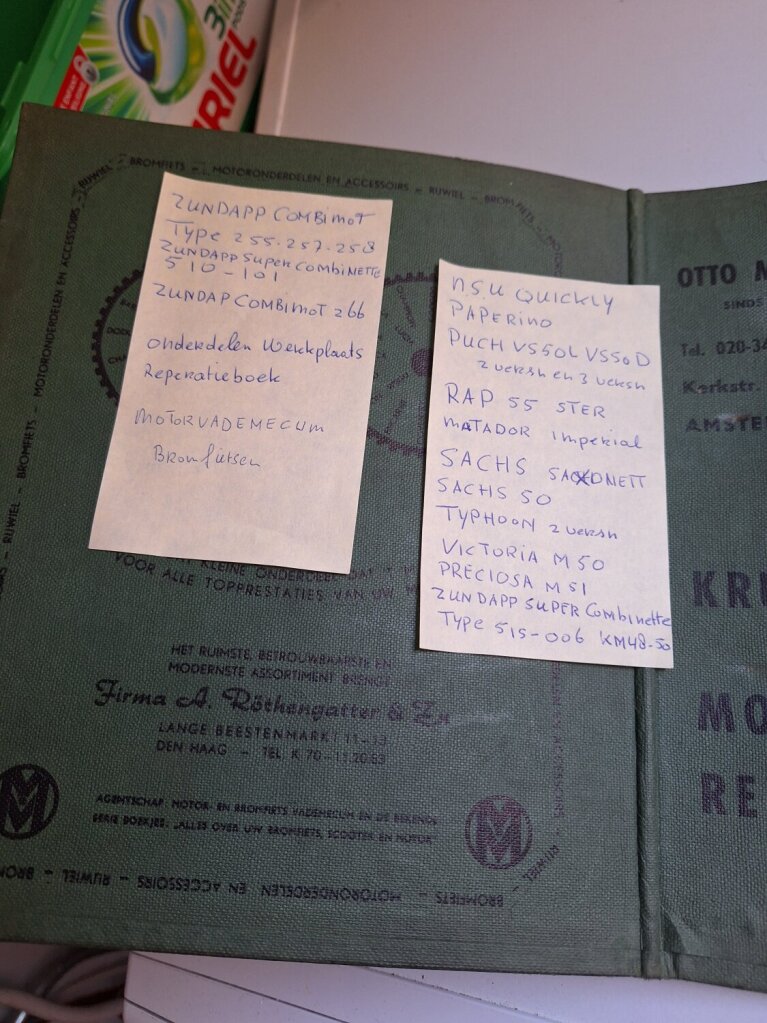 3in1
PODS
ARIEL
RIJWIEL – BROMFIETS – MOTORONDERDELEN EN ACCESSOIRS – RIJWIEL – BROMFIETS – MOTORONDERDELEN EN ACCESSOIRS
ZUNDAPP COMBIMOT
Type 255.257.258
ZUNDAPP SUPER COMBINETTE
510-101
ZUNDAP COMBIMOT 266
onderdelen Werkplaats
Reperatieboek
MOTORVADEMECUM
Bromfietsen
N.S.U QUICKLY
PAPERINO
PUCH VS50L VS50D
2 versn en 3 versn
RAP 55 STER
MATADOR imperial
SACHS SAXONETT
SACHS 50
TYPHOON 2 versn
VICTORIA M50
PRECIOSA M51
ZUNDAPP SUPER Combinette
Type 515-006 KM48-50
KLEINE ONDERDEEL DAT
VOOR ALLE TOPPRESTATIES VAN UW
HET RUIMSTE, BETROUWBAARSTE EN
MODERNSTE ASSORTIMENT BRENGT
Firma A. Röthengatter & Zn
LANGE BEESTENMARKT 11-13
DEN HAAG – TEL K 70-11.20.63
AGENTSCHAP MOTOR- EN BROMFIETS VADEMECUM EN DE BEKENDE
SERIE BOEKJES: „ALLES OVER UW BROMFIETS, SCOOTER EN MOTOR"
BROMFIETS – MOTORONDERDELEN EN ACCESSOIRS – RIJWIEL – BROM
OTTO M
SINDS
Tel. 020-34
Kerkstr.
AMSTE
KRU
MO
RE